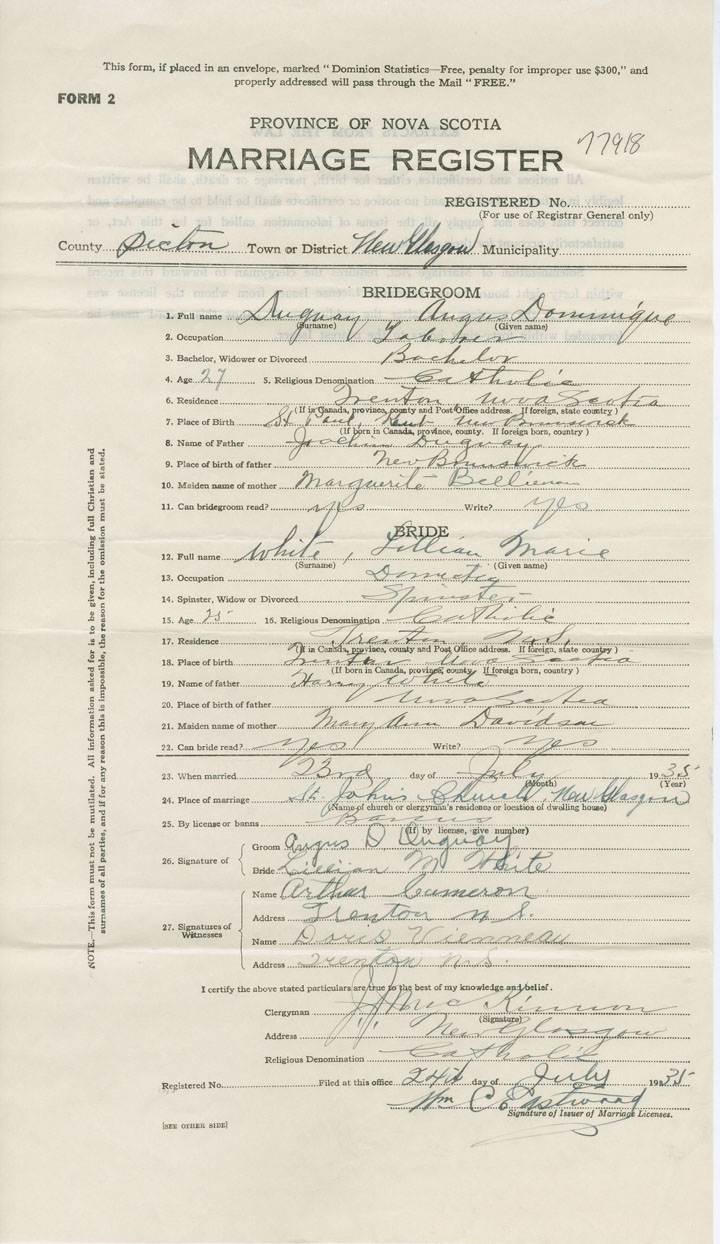 This form, if placed in an envelope, marked "Dominion Statistics—Free, penalty for improper use $300," and
properly addressed will pass through the Mail "FREE."
FORM 2
PROVINCE OF NOVA SCOTIA
MARRIAGE REGISTER 77918
REGISTERED No.
(For use of Registrar General only)
County Pictou Town or District New Glasgow Municipality
BRIDEGROOM
1. Full name Duguay Angus Dominique
(Surname) (Given name)
2. Occupation Laborer
3. Bachelor, Widower or Divorced Bachelor
4. Age 27 5. Religious Denomination Catholic
6. Residence Trenton Nova Scotia
(If in Canada, province, county and Post Office address. If foreign, state country)
7. Place of Birth St Paul, Kent New Brunswick
(If born in Canada, province, county. If foreign born, country)
8. Name of Father Duguay
9. Place of birth of father New Brunswick
10. Maiden name of mother Marguerite
11. Can bridegroom read? yes Write? yes
BRIDE
12. Full name White, Lillian Marie
(Surname) (Given name)
13. Occupation Domestic
14. Spinster, Widow or Divorced Spinster
15. Age 25 16. Religious Denomination Catholic
17. Residence Trenton N.S.
(If in Canada, province, county and Post Office address. If foreign, state country)
18. Place of birth Trenton Nova Scotia
(If born in Canada, province, county. If foreign born, country)
19. Name of father Harry White
20. Place of birth of father Nova Scotia
21. Maiden name of mother Mary Ann Davidson
22. Can bride read? yes Write? yes
23. When married 23rd day of July 1935
(Month) (Year)
24. Place of marriage St. Johns Church, New Glasgow
(Name of church or clergyman's residence or location of dwelling house)
25. By license or banns Banns
(If by license, give number)
26. Signature of
Groom Angus D Duguay
Bride Lillian M White
27. Signatures of Witnesses
Name Arthur Cameron
Address Trenton N.S.
Name Doris Vienneau
Address Trenton N.S.
I certify the above stated particulars are true to the best of my knowledge and belief.
Clergyman MacKinnon
(Signature)
Address New Glasgow
Religious Denomination Catholic
Registered No. Filed at this office 24th day of July 1935
Wm C Eastwood
Signature of Issuer of Marriage Licenses.
[SEE OTHER SIDE]
NOTE.—This form must not be mutilated. All information asked for is to be given, including full Christian and
surnames of all parties, and if for any reason this is impossible, the reason for the omission must be stated.